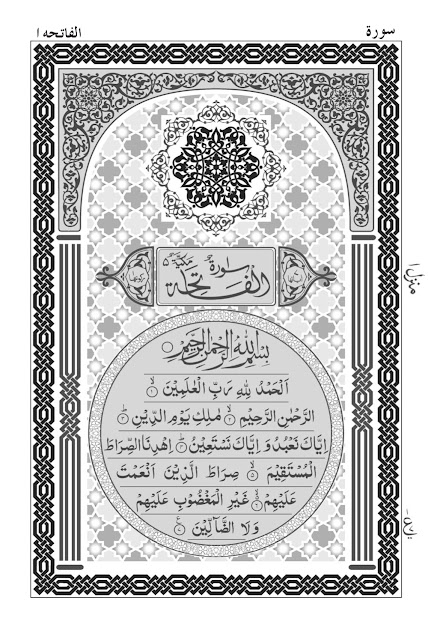 سورة
الفاتحه ١
سورة
الفاتحة
مكية ٥
بسم الله الرحمن الرحيم
اَلْحَمْدُ لِلّٰهِ رَبِّ الْعٰلَمِیْنَ ۙ﴿۱﴾
الرَّحْمٰنِ الرَّحِیْمِ ۙ﴿۲﴾ مٰلِكِ یَوْمِ الدِّیْنِ ؕ﴿۳﴾
اِیَّاكَ نَعْبُدُ وَ اِیَّاكَ نَسْتَعِیْنُ ؕ﴿۴﴾ اِهْدِنَا الصِّرَاطَ
الْمُسْتَقِیْمَ ۙ﴿۵﴾ صِرَاطَ الَّذِیْنَ اَنْعَمْتَ
عَلَیْهِمْ ۙ۬﴿۶﴾ غَیْرِ الْمَغْضُوْبِ عَلَیْهِمْ
وَ لَا الضَّآلِّیْنَ ﴿۷﴾
منزل ١